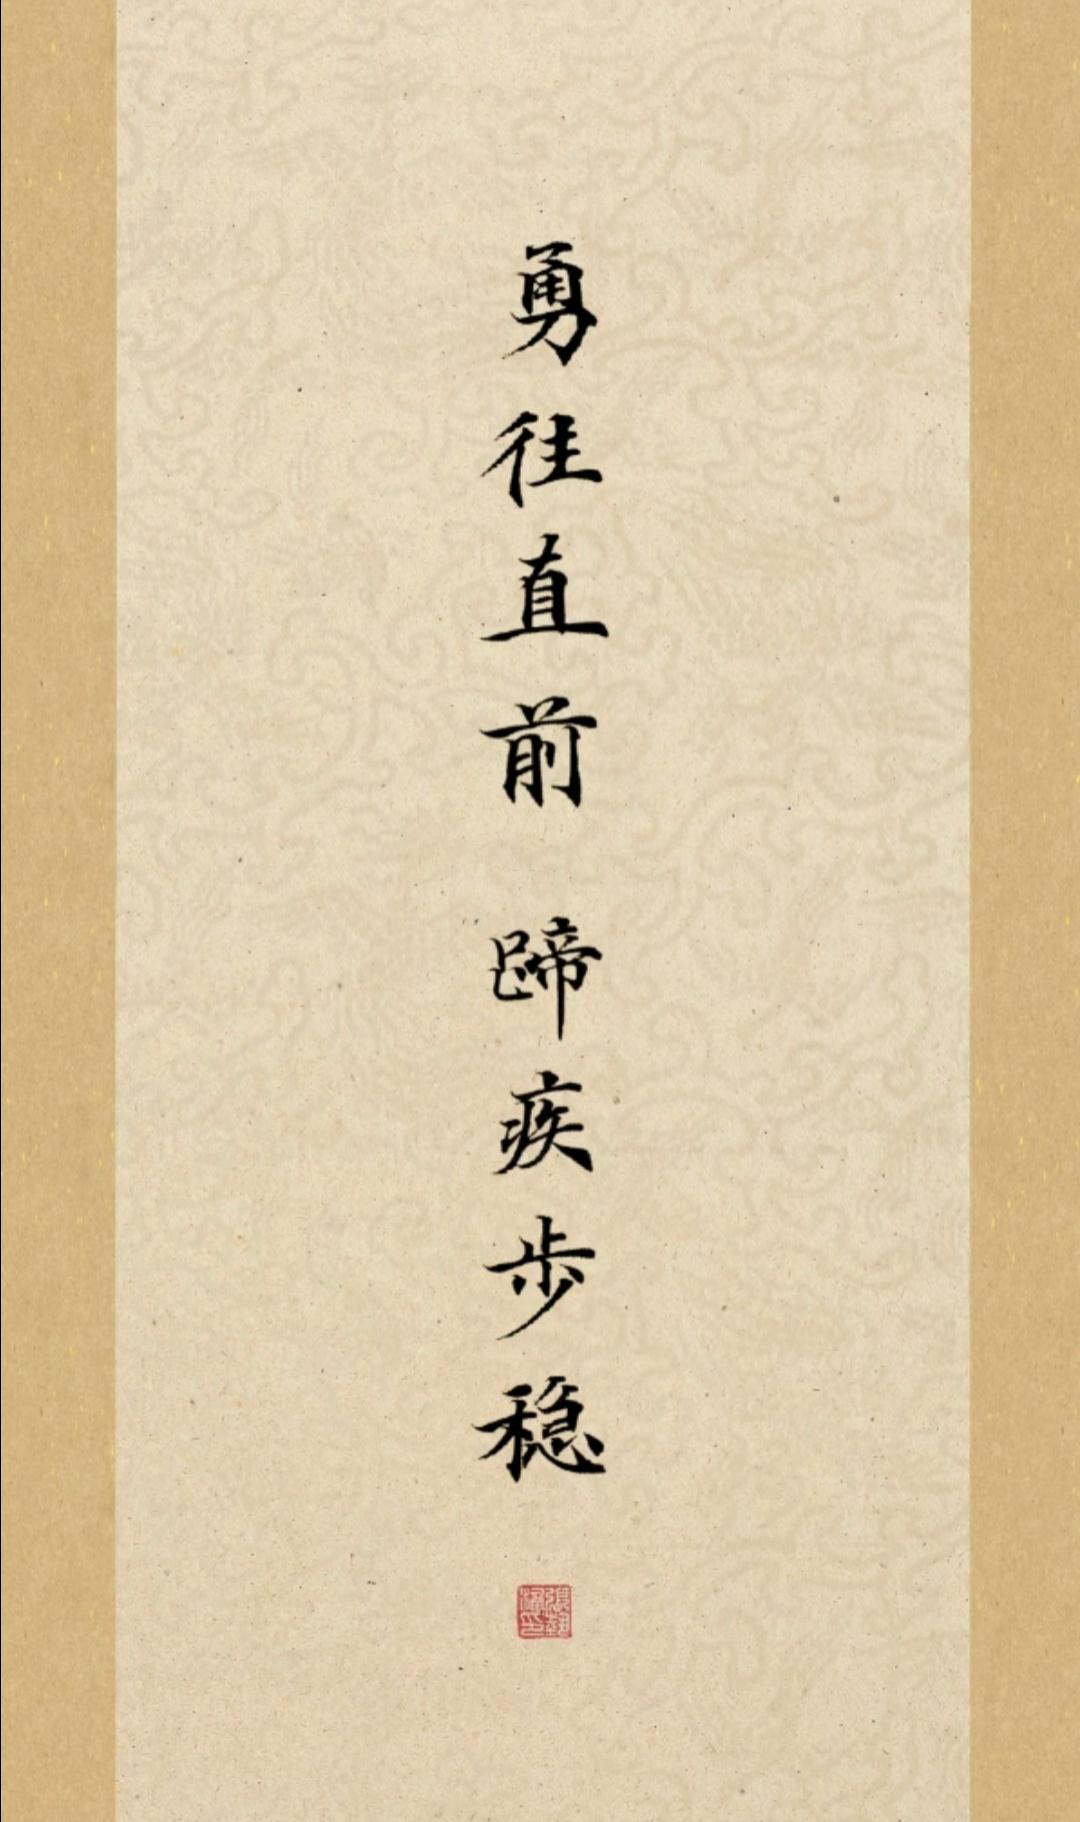 勇往直前 蹄疾步稳